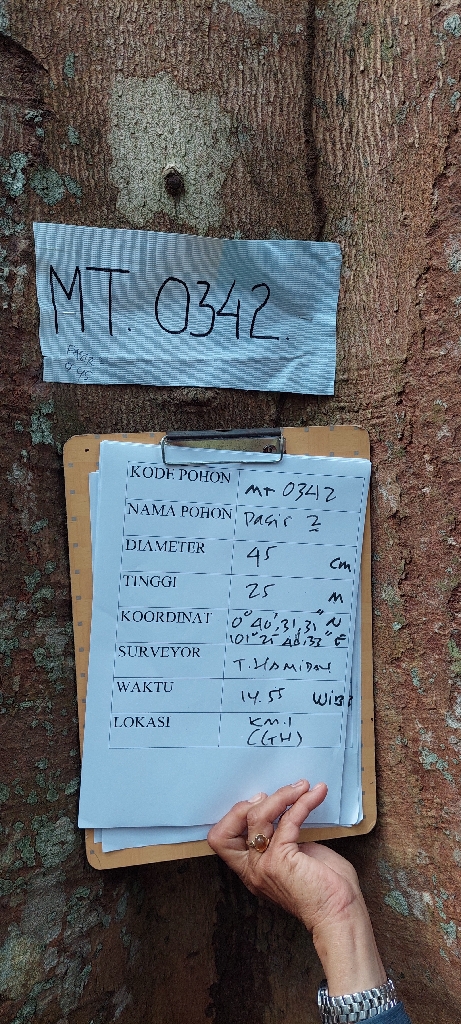 MT. 0342
KODE POHON MT 0342
NAMA POHON Pasir 2
DIAMETER 45 cm
TINGGI 25 M
KOORDINAT 0° 40', 31, 31" N
101° 25' 48, 33" E
SURVEYOR T. HAMIDAH
WAKTU 14.55 WIB
LOKASI KM.1
(GH)